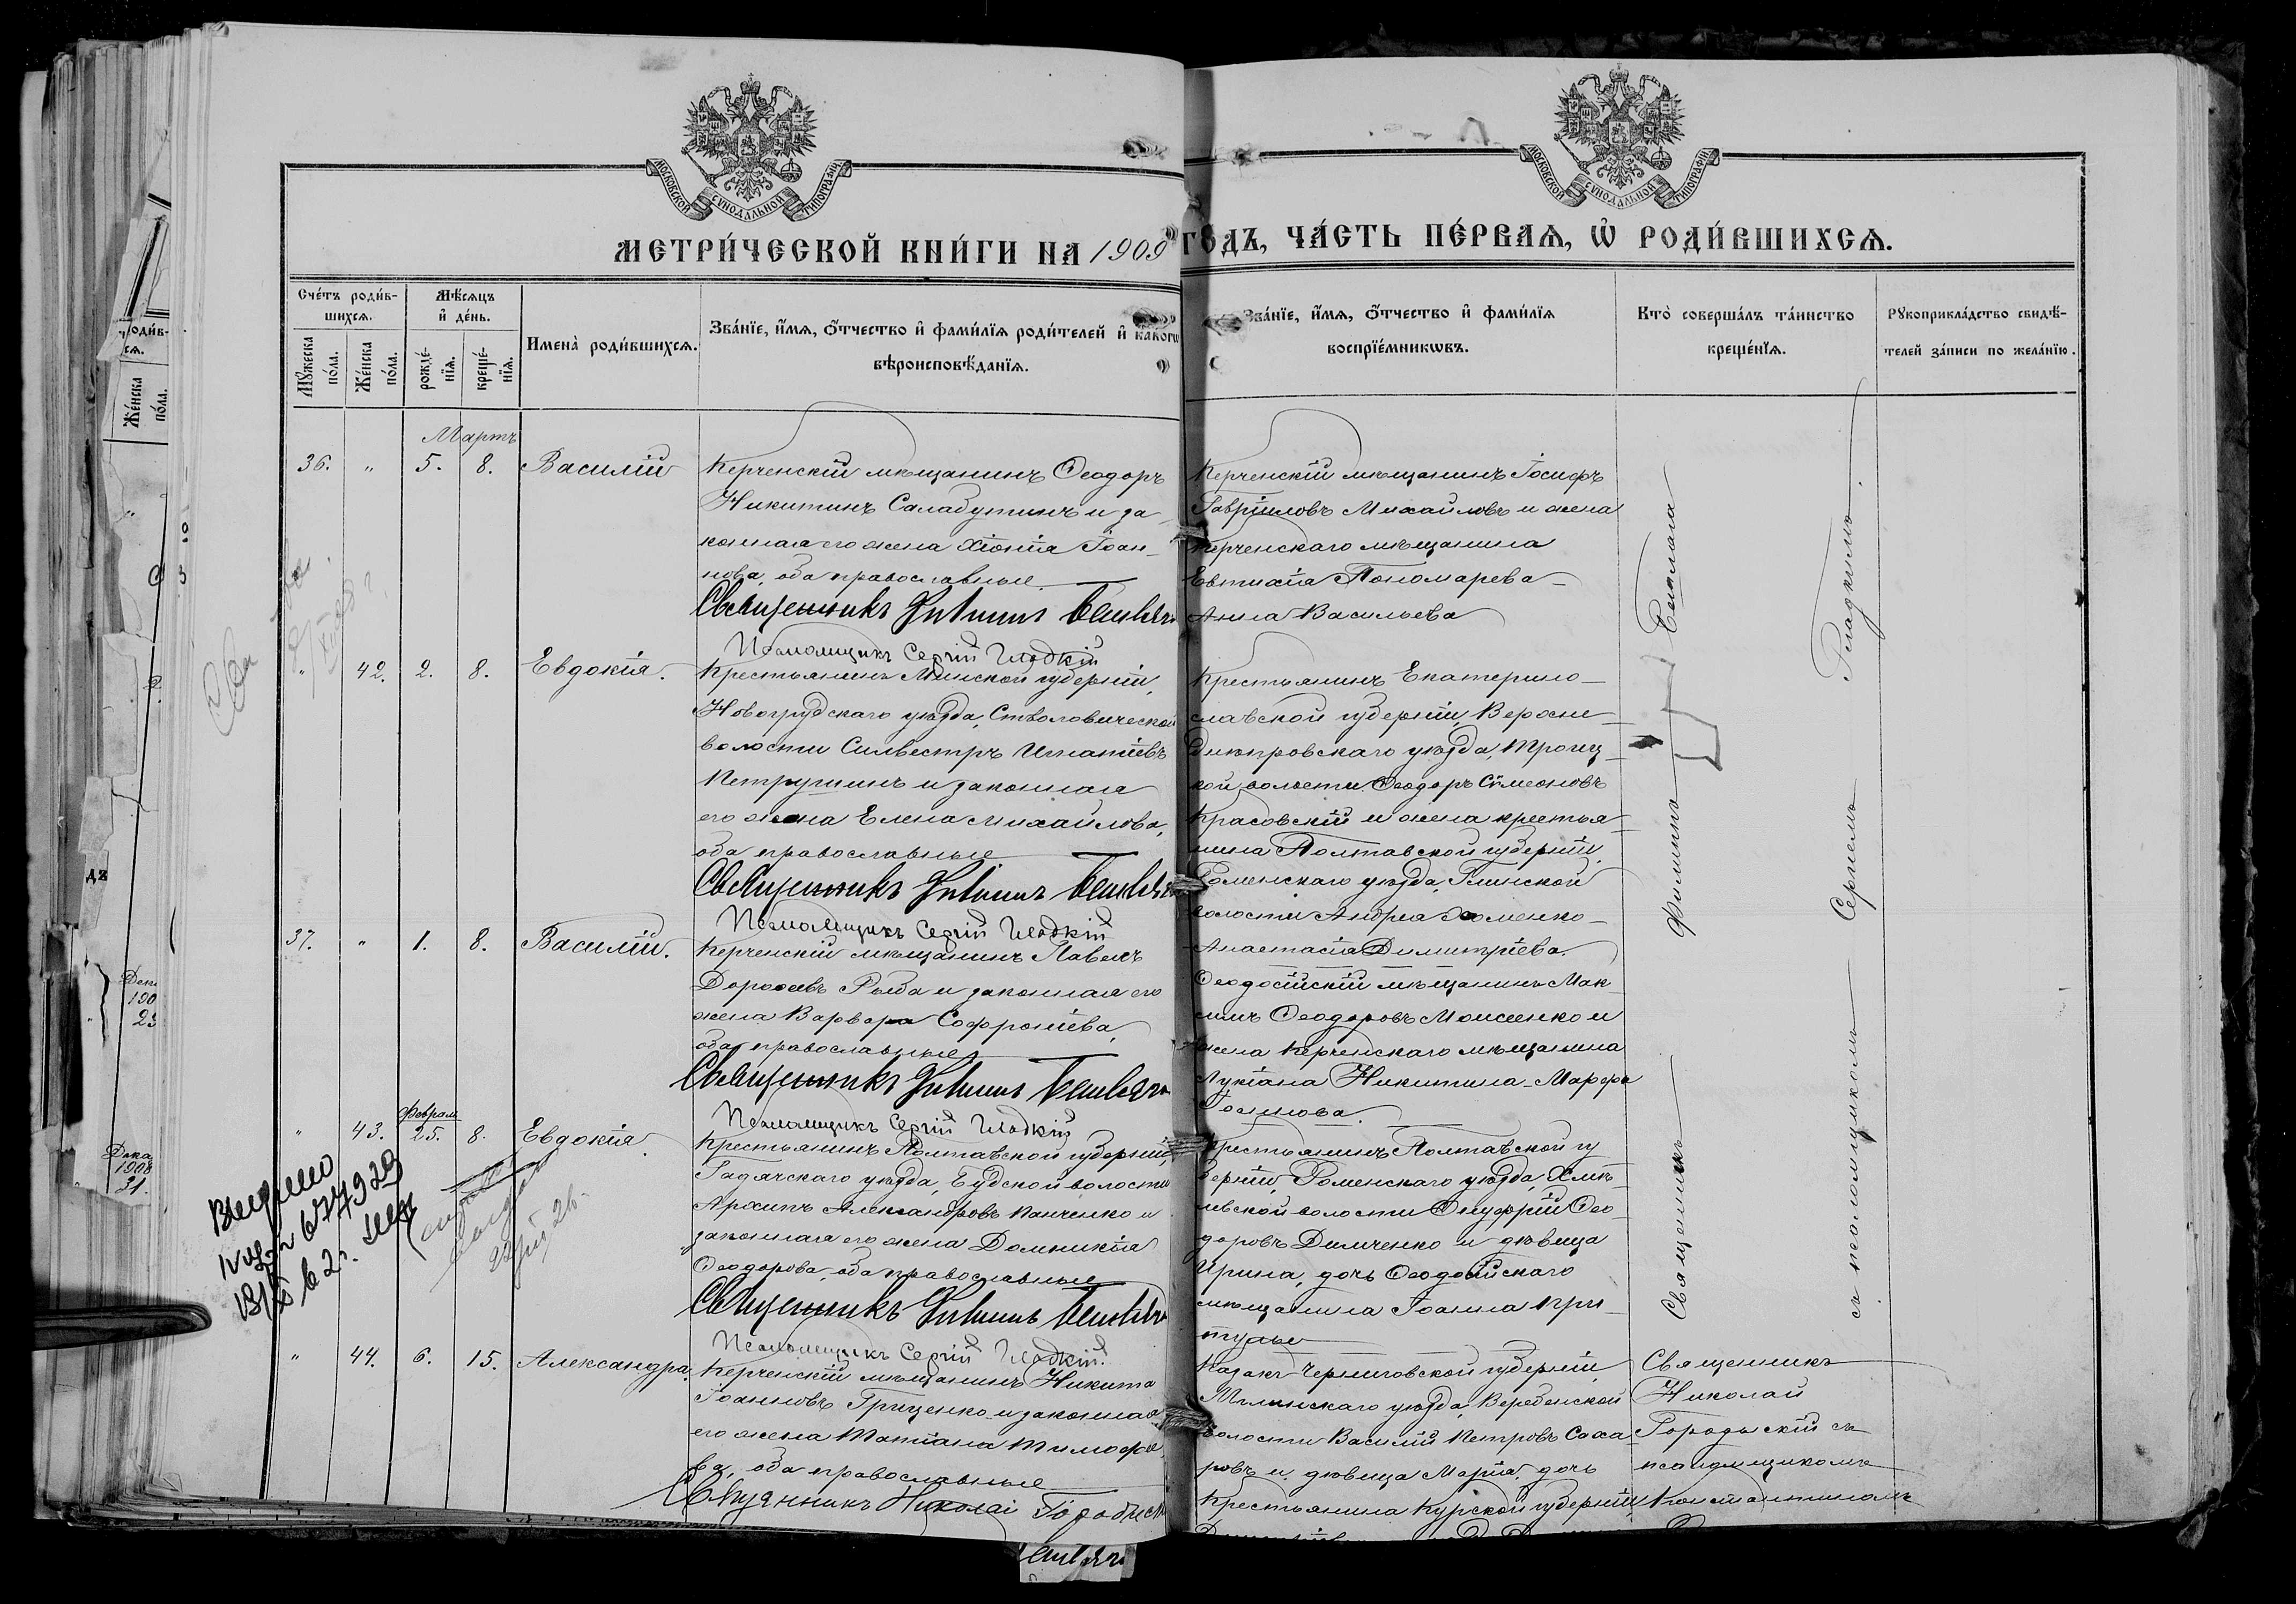 МОСКОВСКОЙ СѴНОДАЛЬНОЙ ТИПОГРАФІИ
МОСКОВСКОЙ СѴНОДАЛЬНОЙ ТИПОГРАФІИ
МЕТРИ́ЧЕСКОЙ КНИ́ГИ НА 1909 ГОДЪ, ЧА́СТЬ ПЕ́РВАѦ, Ѡ҆ РОДИ́ВШИХСѦ.
Сче́тъ роди́в-
шихсѧ.
Мѣ́сѧцъ
и҆ де́нь.
Мꙋ́жеска по́ла.
Же́нска по́ла.
рожде́-нїѧ.
креще́-нїѧ.
Имена̀ роди́вшихсѧ.
Зва́нїе, и҆́мѧ, ѻ҆́тчество и҆ фами́лїѧ роди́телей и҆ какогѡ
вѣроисповѣ́данїѧ.
Зва́нїе, и҆́мѧ, ѻ҆́тчество и҆ фами́лїѧ
воспрїе́мникѡвъ.
Кто̀ соверша́лъ та́инство
креще́нїѧ.
Рꙋкоприкла́дство свидѣ́-
телей за́писи по жела́нїю.
Мартъ
36. " 5. 8. Василій
Керченскій мѣщанинъ Ѳеодоръ
Никитинъ Салабутинъ и за-
конная его жена Хіонія Іоан-
нова, оба православные
Священникъ
Псаломщикъ Сергій Гладкій
Керченскій мѣщанинъ Іосифъ
Гавріиловъ Михайловъ и жена
Керченскаго мѣщанина
Евтихія Пономарева -
Анна Васильева
" 42. 2. 8. Евдокія.
Крестьянинъ Минской губерніи,
Новогрудскаго уѣзда, Стволовической
волости Силвестръ Игнатіевъ
Петрушинъ и законная
его жена Елена Михайлова,
оба православные
Священникъ
Псаломщикъ Сергій Гладкій
Крестьянинъ Екатерино-
славской губерніи, Верхне-
днѣпровскаго уѣзда, Троиц-
кой волости Ѳеодоръ Сѷмеоновъ
Красовскій и жена крестья-
нина Полтавской губерніи,
Роменскаго уѣзда, Глинской
волости Андрея Хоменко -
Анастасія Димитріева.
37. " 1. 8. Василій.
Керченскій мѣщанинъ Павелъ
Дороѳеевъ Рыба и законная его
жена Варвара Софроніева,
оба православные
Священникъ
Псаломщикъ Сергій Гладкій
Ѳеодосійскій мѣщанинъ Мак-
симъ Ѳеодоровъ Моисеенко и
жена Керченскаго мѣщанина
Лукіана Никитина - Марфа
Февраль
" 43. 25. 8. Евдокія.
Крестьянинъ Полтавской губерніи,
Гадячскаго уѣзда, Будской волости
Архипъ Александровъ Панченко и
законная его жена Домникія
Ѳеодорова, оба православные
Священникъ
Псаломщикъ Сергій Гладкій.
Крестьянинъ Полтавской гу
берніи, Роменскаго уѣзда, Хмѣ-
левской волости Онуфрій Ѳео-
доровъ Димченко и дѣвица
Ирина, дочь Ѳеодосійскаго
мѣщанина Іоанна При-
" 44. 6. 15. Александра.
Керченскій мѣщанинъ Никита
Іоанновъ Гриценко и законная
его жена Татіана Тимофее
ва, оба православные
Священникъ Николай
Казакъ Черниговской губерніи,
Мглинскаго уѣзда,
волости Василій Петровъ Саха-
ровъ и дѣвица Марія, дочь
Крестьянина Курской губерніи,
Священникъ
Николай
Городыскій съ
псаломщикомъ
Константиномъ
Священникъ Филиппъ
съ псаломщикомъ Сергіемъ Гладкимъ.